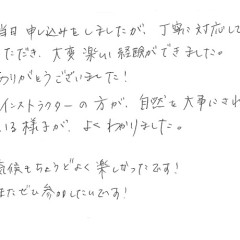 当日 申し込みをしましたが、丁寧に対応して
ただき、大変楽しい経験ができました。
ありがとうございました！
インストラクターの方が、自然を大事にされ
いる様子が、よくわかりました。
気候もちょうどよく楽しかったです！
またぜひ参加したいです！